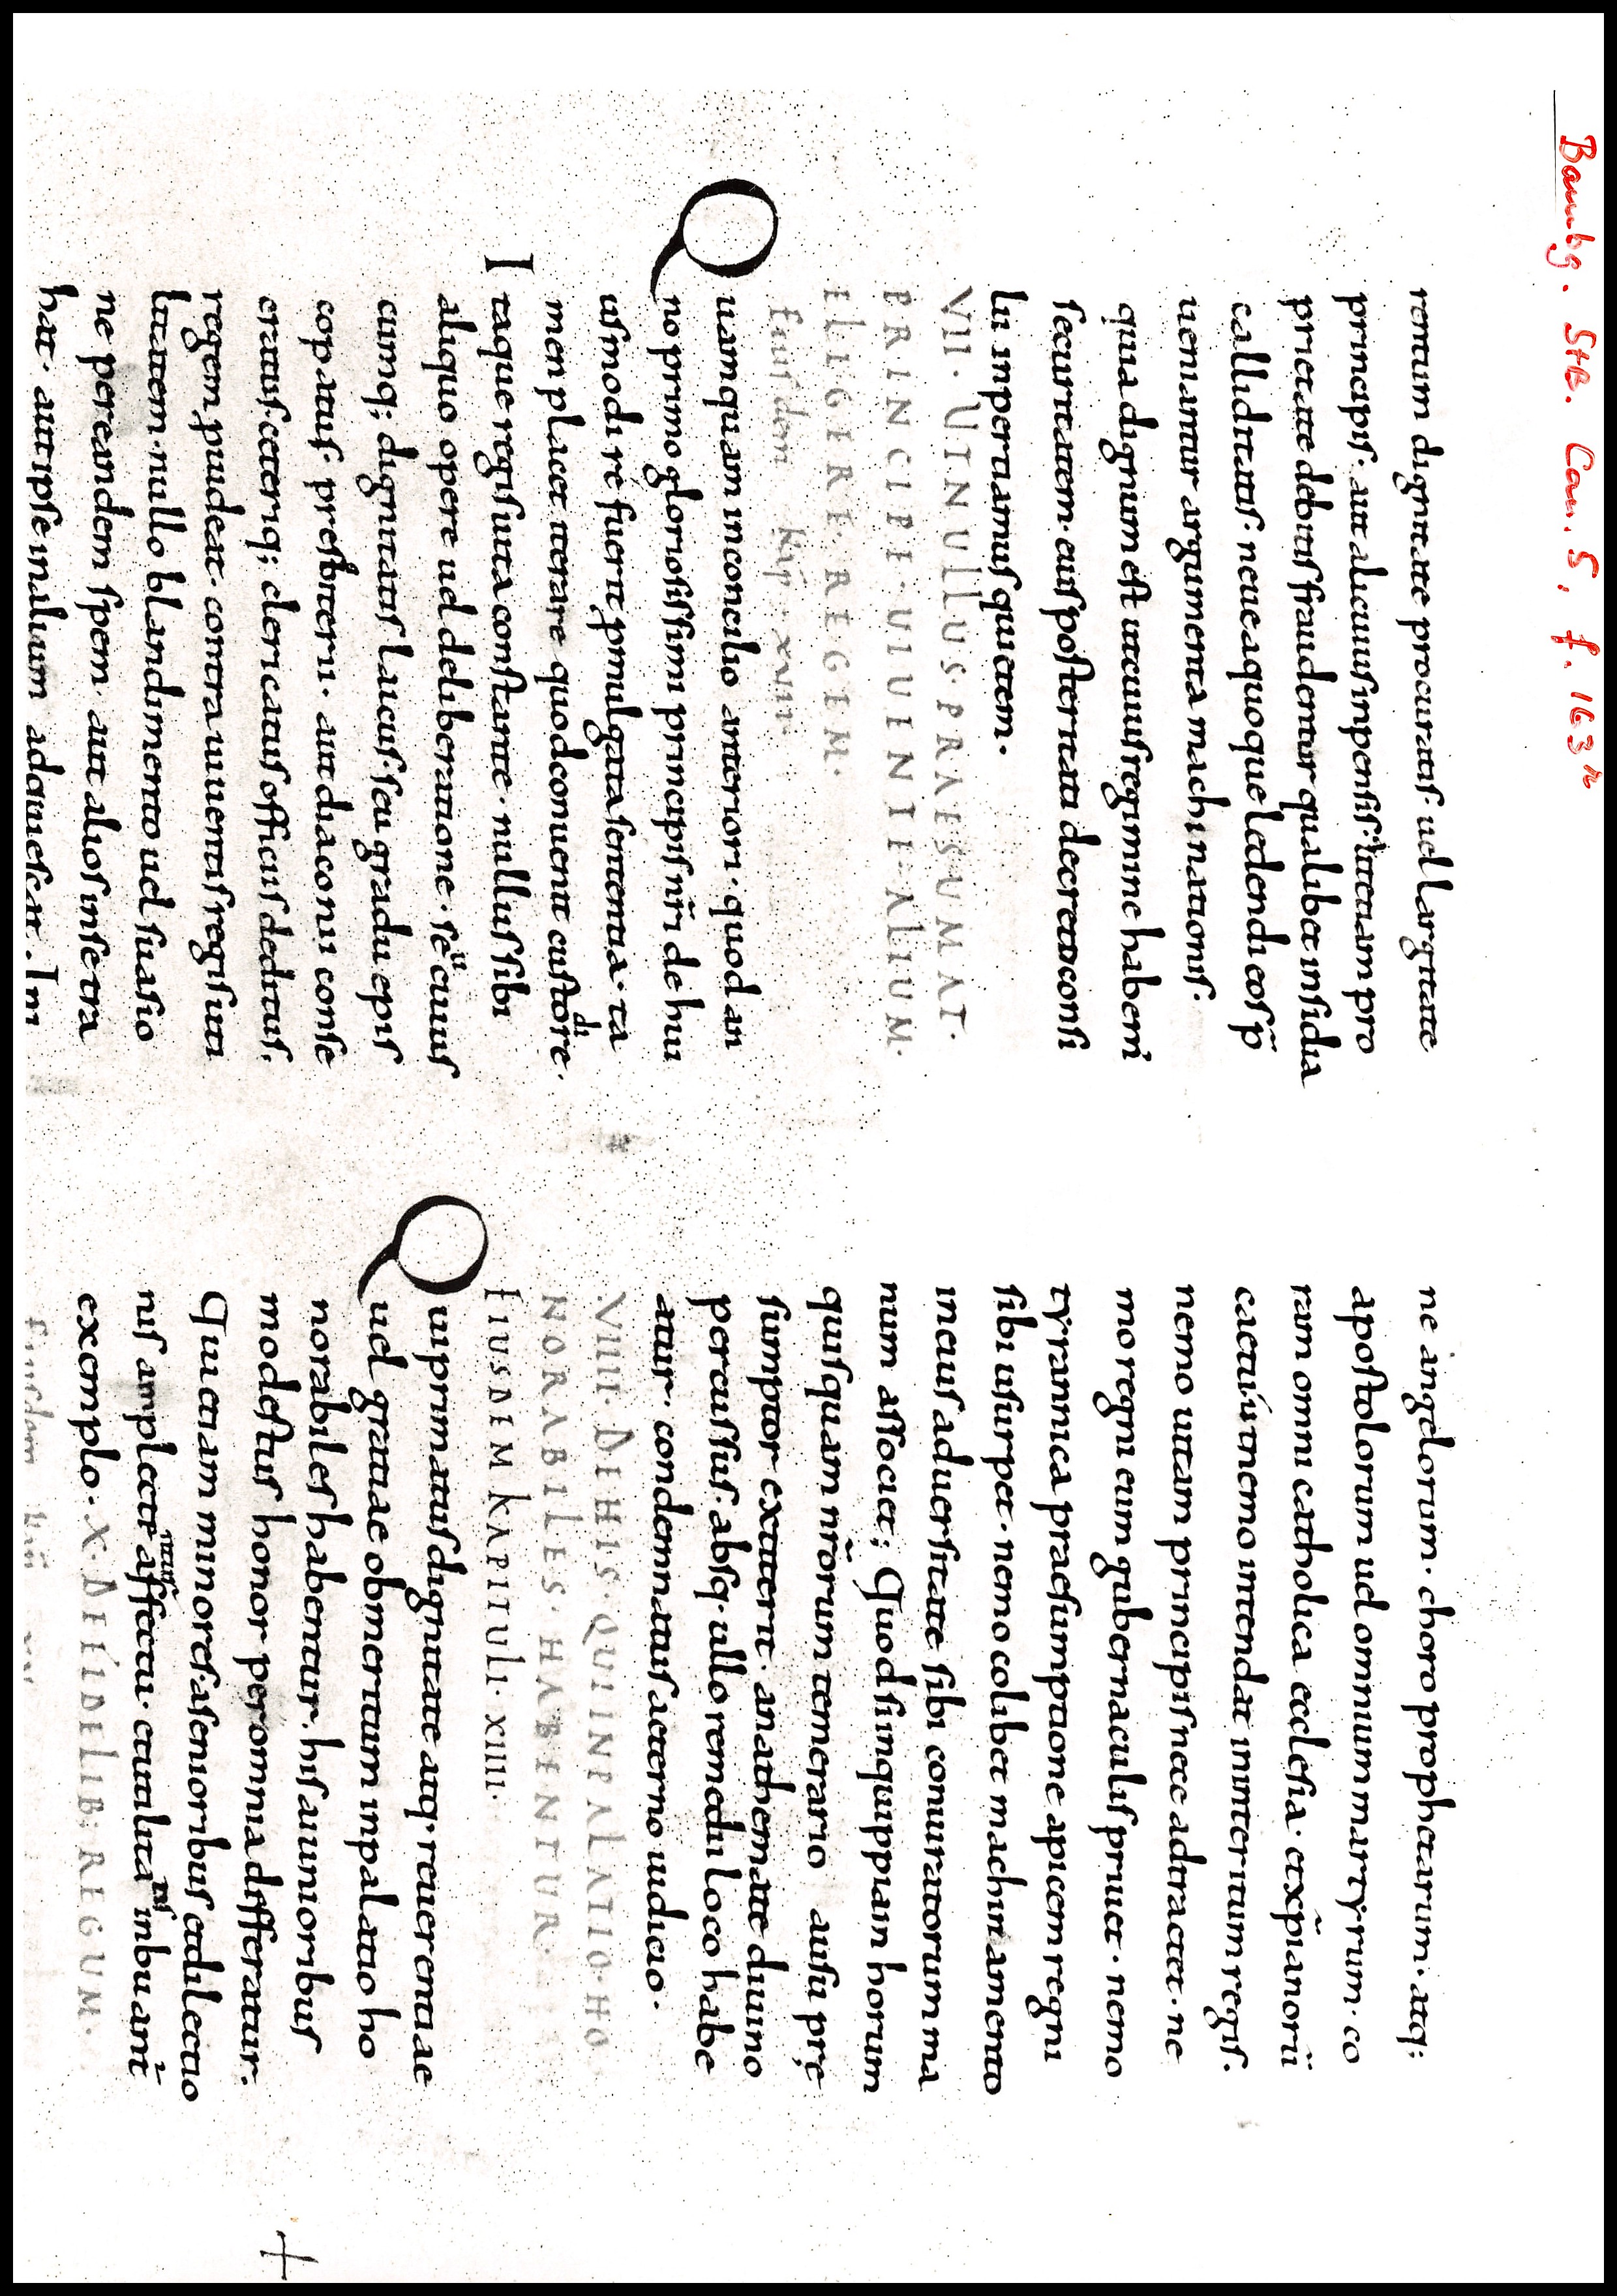 Bambg. Stb. Can. 5, f. 163r
rentum dignitate procuratis. uel largitate
principis. aut alicuius inpensis. ut etiam pro
prietate debitis fraudentur qualibet insidia
calliditatis. neue a quoque laedendi eos p̄
ueniantur argumenta machinationis.
qua dignum est ut cuius regimine habem̄
securitatem. eius posteritati decreto consi
lii inpertiamus quietem.
VII. UT IN ULLUS. PRAESUMAT.
PRINCIPE. UIUENTE. ALIUM.
ELIGERE. REGEM.
Eiusdem kap̄. xvii.
Quamquam in concilio anteriori. quod an
no primo gloriosissimi principis nr̄i de hu
iusmodi re fuerit p̱mulgata sententia. ta
men placet iterare quod conuenit custodire.
Itaque regis uita constante. nullus sibi
aliquo opere uel deliberatione. seu cuius
cumq; dignitatis laicus. seu gradu epis
copatus. presbiterii. aut diaconii conse
cratus. ceterisq; clericatus officiis deditus.
regem puideat. contra uiuentis regis uti
litatem. nullo blandimento uel suasio
ne per eandem spem. aut alios in se tra
hat. aut ipse in alium adquiescat. In
ne angelorum. choro prophetarum. atq;
apostolorum uel omnium martyrum. co
ram omni catholica ecclesia. et xp̄ianorū
caetu. ut nemo intendat in interitum regis.
nemo uitam principis nece adtractet. ne
mo regni eum gubernaculis priuet. nemo
tyrannica praesumptione apicem regni
sibi usurpet. nemo colibet machinamento
in eius aduersitate sibi coniuratorum ma
num associet; Quod si in quippiam horum
quisquam nr̄orum temerario ausu prę
sumptor extiterit. anathemate diuino
percussus. absq. ullo remedii loco habe
atur. condemnatus aeterno iudicio.
VIIII. DE HIS. QUI IN PALATIO. HO
NORABILES. HABENTUR.
EIUSDEM KAPITULI. XIIII.
Qui primatus dignitate atq. reuerentiae
uel gratiae ob meritum in palatio ho
norabiles habentur. his a iunioribus
modestus honor per omnia differatur.
Qui etiam minores a senioribus et dilectio
nis amplectentur affectu. et utilitatis inbuant̄
exemplo. X. DE FIDELIB; REGUM.